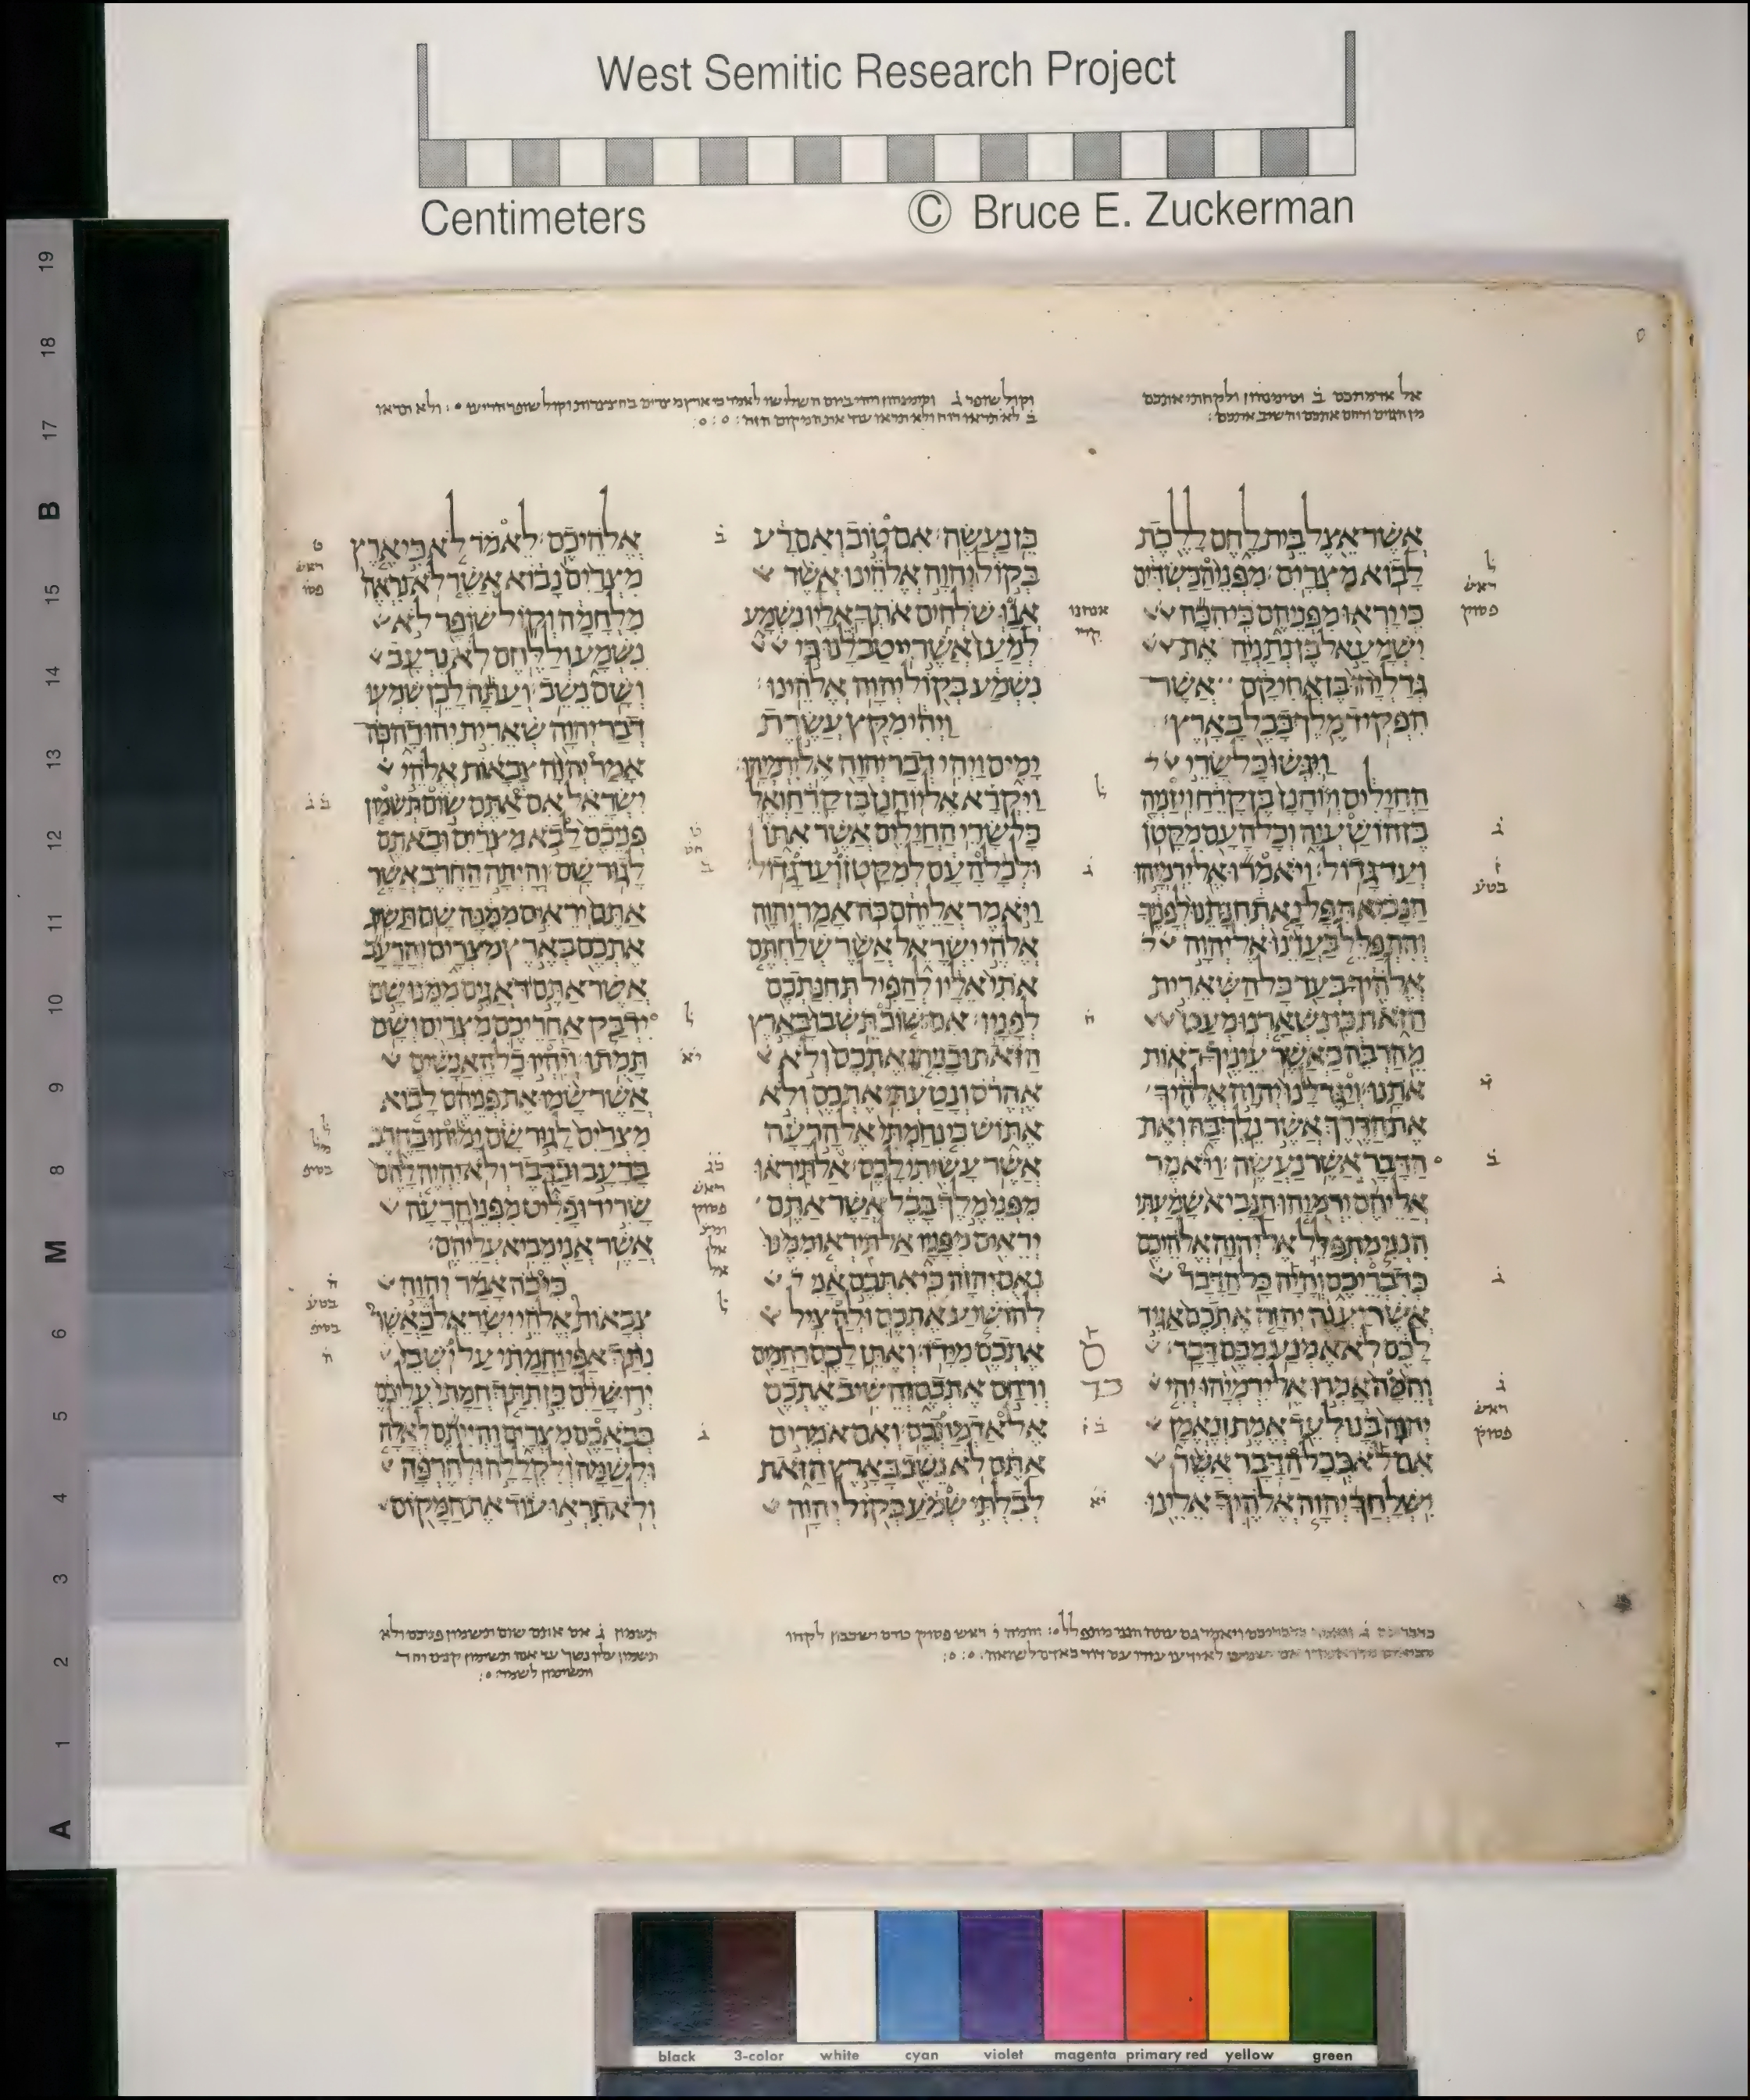 West Semitic Research Project
Centimeters © Bruce E. Zuckerman
אל אדמתכם ב וסימנהון ולקחתי אתכם
מן הגוים ורחם אתכם והשיב אתכם׃
וקול שופר ג וסימנהון ויהי ביום השלישי לאמר כי ארץ מצרים בחצצרות וקול שופר הריעו ׃ ולא תראו
ב לא תראו רוח ולא תראו עוד את המקום הזה׃
אשר אצל בית לחם ללכת
לבוא מצרים׃ מפני הכשדים
כי יראו מפניהם כי הכה
ישמעאל בן נתניה את
גדליהו בן אחיקם אשר
הפקיד מלך בבל בארץ׃
ויגשו כל שרי
החילים ויוחנן בן קרח ויזניה
בן הושעיה וכל העם מקטן
ועד גדול׃ ויאמרו אל ירמיהו
הנביא תפל נא תחנתנו לפניך
והתפלל בעדנו אל יהוה
אלהיך בעד כל השארית
הזאת כי נשארנו מעט
מהרבה כאשר עיניך ראות
אתנו׃ ויגד לנו יהוה אלהיך
את הדרך אשר נלך בה ואת
הדבר אשר נעשה׃ ויאמר
אליהם ירמיהו הנביא שמעתי
הנני מתפלל אל יהוה אלהיכם
כדבריכם והיה כל הדבר
אשר יענה יהוה אתכם אגיד
לכם לא אמנע מכם דבר׃
והמה אמרו אל ירמיהו יהי
יהוה בנו לעד אמת ונאמן
אם לא ככל הדבר אשר
ישלחך יהוה אלהיך אלינו
כן נעשה׃ אם טוב ואם רע
בקול יהוה אלהינו אשר
אנו שלחים אתך אליו נשמע
למען אשר ייטב לנו כי
נשמע בקול יהוה אלהינו׃
ויהי מקץ עשרת
ימים ויהי דבר יהוה אל ירמיהו׃
ויקרא אל יוחנן בן קרח ואל
כל שרי החילים אשר אתו
ולכל העם למקטן ועד גדול׃
ויאמר אליהם כה אמר יהוה
אלהי ישראל אשר שלחתם
אתי אליו להפיל תחנתכם
לפניו׃ אם שוב תשבו בארץ
הזאת ובניתי אתכם ולא
אהרס ונטעתי אתכם ולא
אתוש כי נחמתי אל הרעה
אשר עשיתי לכם׃ אל תיראו
מפני מלך בבל אשר אתם
יראים מפניו אל תיראו ממנו
נאם יהוה כי אתכם אני
להושיע אתכם ולהציל
אתכם מידו׃ ואתן לכם רחמים
ורחם אתכם והשיב אתכם
אל אדמתכם׃ ואם אמרים
אתם לא נשב בארץ הזאת
לבלתי שמע בקול יהוה
אלהיכם׃ לאמר לא כי ארץ
מצרים נבוא אשר לא נראה
מלחמה וקול שופר לא
נשמע וללחם לא נרעב
ושם נשב׃ ועתה לכן שמעו
דבר יהוה שארית יהודה כה
אמר יהוה צבאות אלהי
ישראל אם אתם שום תשמון
פניכם לבא מצרים ובאתם
לגור שם׃ והיתה החרב אשר
אתם יראים ממנה שם תשיג
אתכם בארץ מצרים והרעב
אשר אתם דאגים ממנו שם
ידבק אחריכם מצרים ושם
תמתו׃ ויהיו כל האנשים
אשר שמו את פניהם לבוא
מצרים לגור שם ימותו בחרב
ברעב ובדבר ולא יהיה להם
שריד ופליט מפני הרעה
אשר אני מביא עליהם׃
כי כה אמר יהוה
צבאות אלהי ישראל כאשר
נתך אפי וחמתי על ישבי
ירושלם כן תתך חמתי עליכם
בבאכם מצרים והייתם לאלה
ולשמה ולקללה ולחרפה
ולא תראו עוד את המקום
ל
ראש
פסוק
ג
ז
בטע
ב
ג
ג
ראש
פסוק
אנחנו
קרי
ל
ג
ח
כד
יא
ב
ט
ל
יא
כג
ראש
פסוק
ל
ג
ט
ראש
פסו
ח
בטע
בסיפ
ח
תשמון ג אם אתם שום תשמון פניכם ולא
תשמון עליו נשך
black 3-color white cyan violet magenta primary red yellow green
19 18 17 B 15 14 13 12 11 10 9 8 M 6 5 4 3 2 1 A